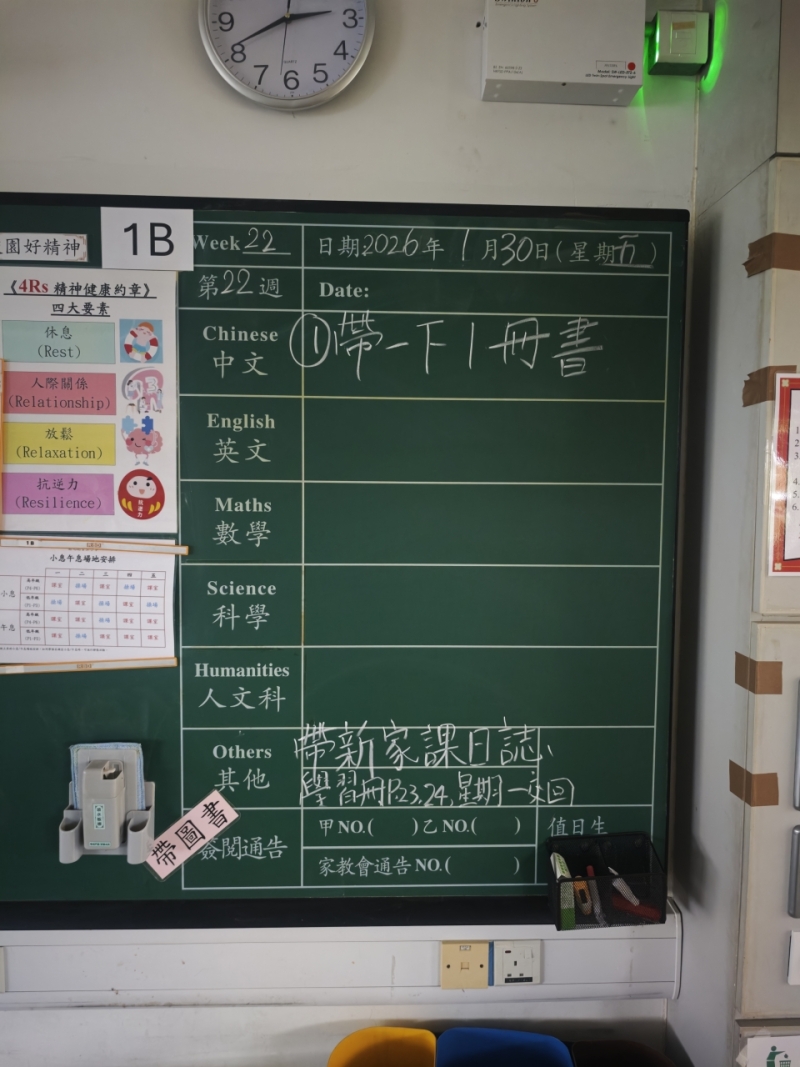 9
8
7
6
5
4
3
園好精神
1B
Week 22
日期:2026年 1月30日(星期五)
第22週
Date:
《4Rs 精神健康約章》
四大要素
休息
(Rest)
人際關係
(Relationship)
放鬆
(Relaxation)
抗逆力
(Resilience)
Chinese
中文
①帶一下1冊書
English
英文
Maths
數學
Science
科學
Humanities
人文科
Others
其他
帶新家課日誌、
學習冊P.23,24,星期一交回
簽閱通告
甲NO.( )乙NO.( )
值日生
家教會通告NO.( )
1B
小息午息場地安排
一 二 三 四 五
小息
午息
帶圖書